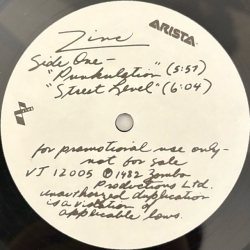 Zinc
ARISTA
Side One-
"Punkulation" (5:57)
"Street Level" (6:04)
for promotional use only-
not for sale
VJ 12005 ℗1982 Zomba
Productions Ltd.
unauthorized duplication
is a violation of
applicable laws.